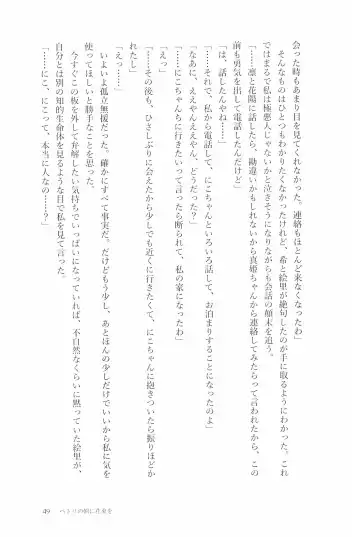 会った時もあまり目を見てくれなかった。連絡もほとんど来なくなったわ」
そんなものはひとつもわかりたくなかったけれど、希と絵里が絶句したのが手に取るようにわかった。これ
ではまるで私は極悪人じゃないかと泣きそうになりながらも会話の顛末を追う。
「……凛と花陽に話したら、勘違いかもしれないから真姫ちゃんから連絡してみたらって言われたから、この
前も勇気を出して電話したんだけど」
「は、話したんやね……」
「……それで、私から電話して、にこちゃんといろいろ話して、お泊まりすることになったのよ」
「なに、ええやんええやん、どうだった？」
「……にこちゃんちに行きたいって言ったら断られて、私の家になったわ」
「えっ」
「……その後も、ひさしぶりに会えたから少しでも近くに行きたくて、にこちゃんに抱きついたら振りほどか
れたし」
「えっ……」
いよいよ孤立無援だった。確かにすべて事実だ。だけどもう少し、あとほんの少しだけでいいから私に気を
使ってほしいと勝手なことを思った。
今すぐこの板を外して弁解したい気持ちでいっぱいになっていれば、不自然なくらいに黙っていた絵里が、
自分とは別の知的生命体を見るような目で私を見て言った。
「……にこ、にこって、本当に人なの……？」
49　ハトリの朝に花束を